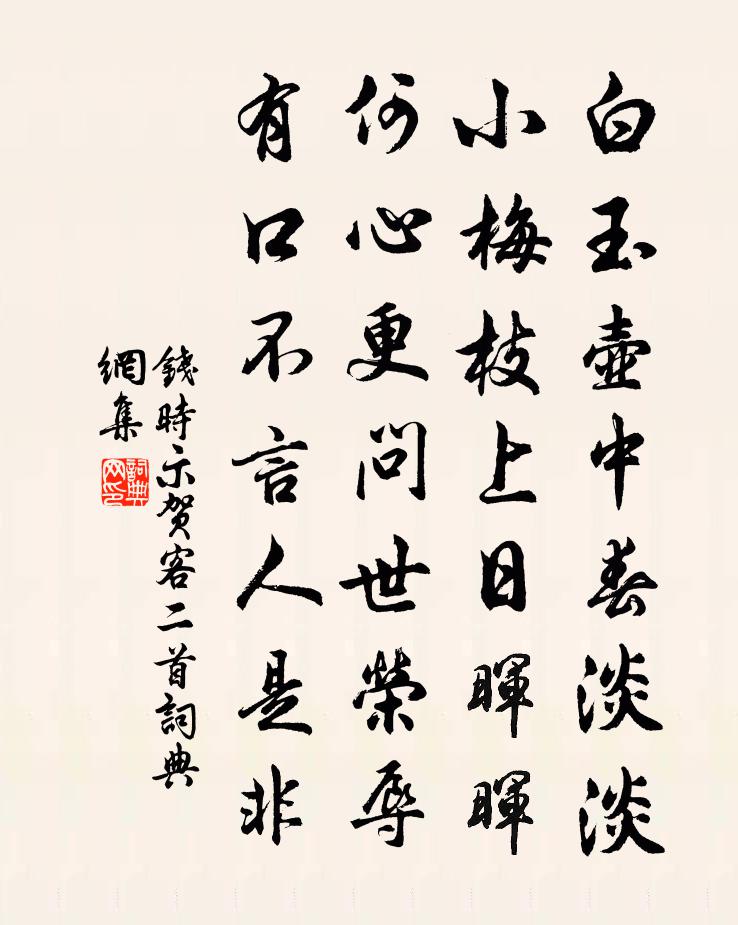 白玉壺中春淡淡
小梅枝上日暉暉
何心更問世榮辱
有口不言人是非
錢時示賀客二首詞典
網集
詞典網印